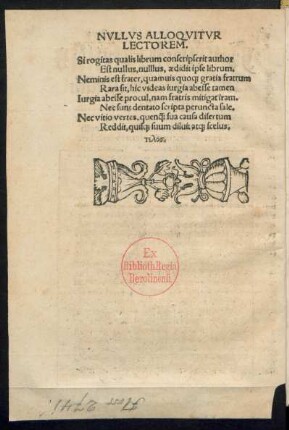 NVLLVS ALLOQVITVR
LECTOREM.
Si rogitas qualis librum conscripserit author
Est nullus, nullius, ædidit ipse librum,
Neminis est frater, quamuis quoq; gratia fratrum
Rara sit, hic videas iurgia abesse tamen
Iurgia abesse procul, nam fratris mitigat iram.
Nec sunt dentato scripta peruncta sale.
Nec vitio vertes, quenq; sua causa disertum
Reddit, quisq; suum diluit atq; scelus,
τελος.
Ex
Biblioth. Regia
Berolinensi.